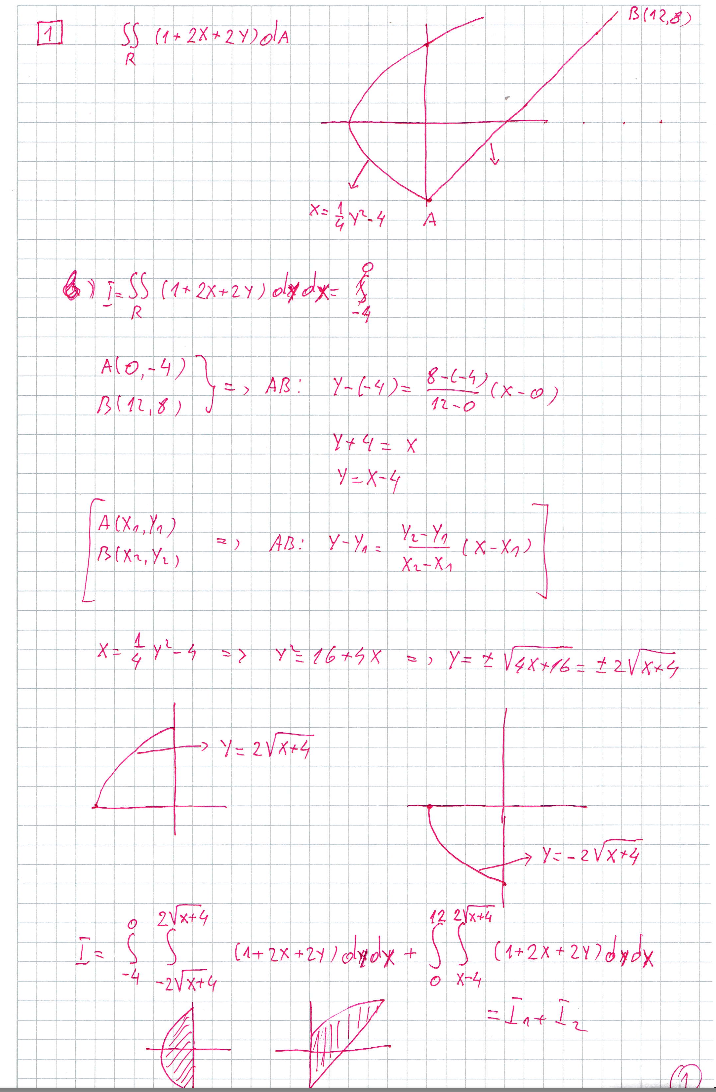 1 ∬_R (1+2x+2y)dA
B(12,8)
x = 1/4 y² - 4
A
b) I = ∬_R (1+2x+2y) dy dx = ∫_{-4}^{0}
A(0,-4)
B(12,8)
} => AB: y-(-4) = (8-(-4))/(12-0) (x-0)
y+4 = x
y = x-4
[ A(x₁,y₁)
B(x₂,y₂)
=> AB: y-y₁ = (y₂-y₁)/(x₂-x₁) (x-x₁) ]
x = 1/4 y² - 4 => y² = 16+4x => y = ±√(4x+16) = ±2√(x+4)
y = 2√(x+4)
y = -2√(x+4)
I = ∫_{-4}^{0} ∫_{-2√(x+4)}^{2√(x+4)} (1+2x+2y) dy dx + ∫_{0}^{12} ∫_{x-4}^{2√(x+4)} (1+2x+2y) dy dx
= I₁ + I₂
1